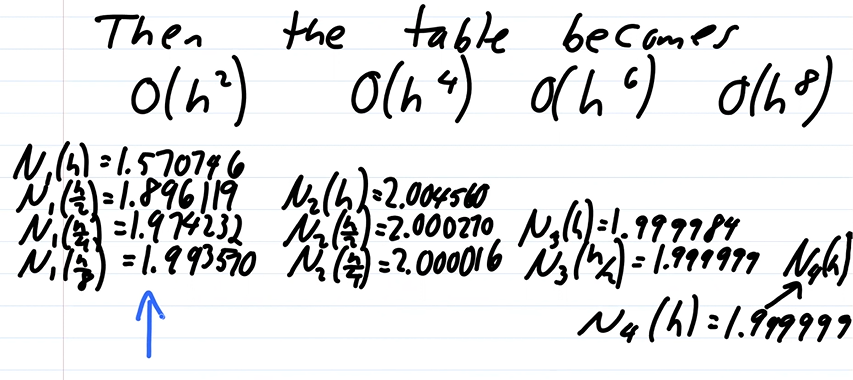 Then the table becomes
O(h²) O(h⁴) O(h⁶) O(h⁸)
N₁(h)=1.570746
N₁(h/2)=1.896119 N₂(h)=2.004560
N₁(h/4)=1.974232 N₂(h/2)=2.000270 N₃(h)=1.999984
N₁(h/8)=1.993570 N₂(h/4)=2.000016 N₃(h/2)=1.999999 N₄(h)
N₄(h)=1.999999